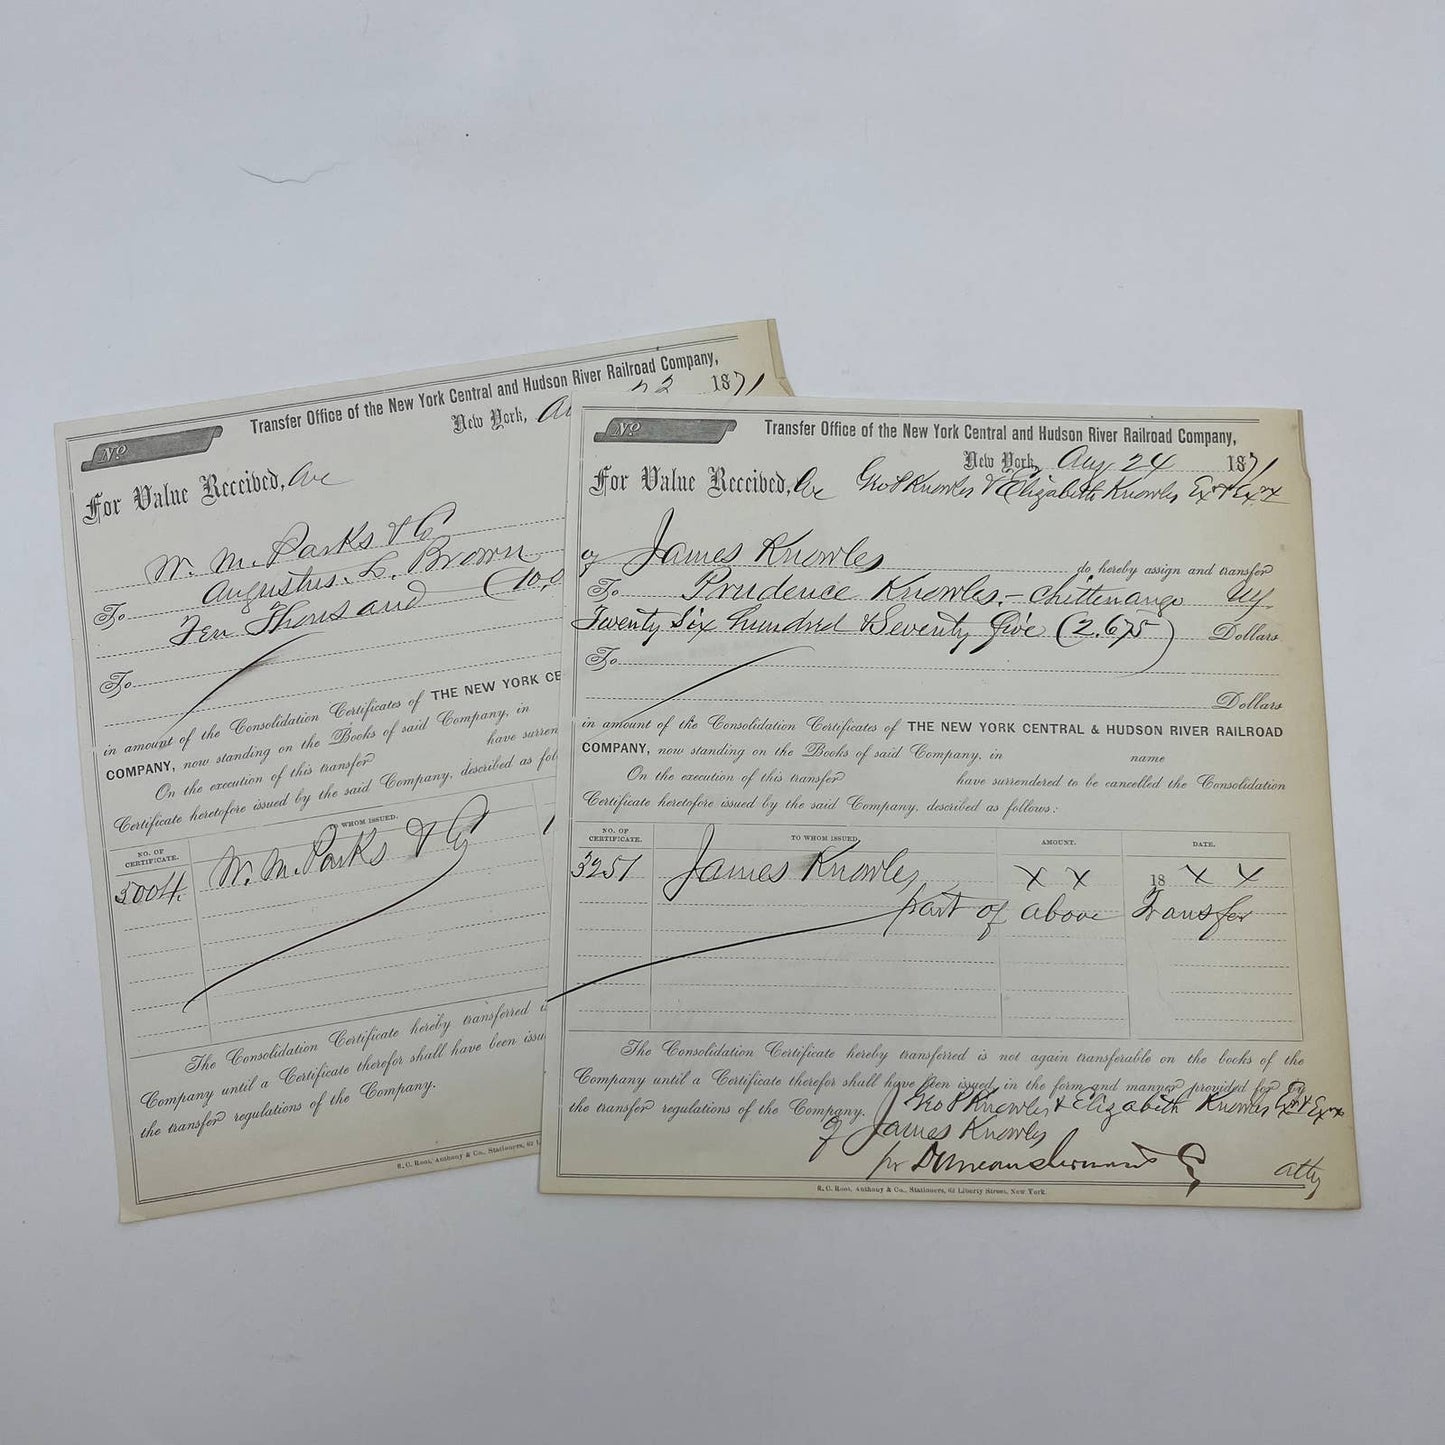 Transfer Office of the New York Central and Hudson River Railroad Company,
No
New York, 22 1871
For Value Received, We
W. M. Parks & Co
To Augustus. L. Brown
Ten Thousand (10,0
To
in amount of the Consolidation Certificates of THE NEW YORK CE
COMPANY, now standing on the Books of said Company, in
On the execution of this transfer have surren
Certificate heretofore issued by the said Company, described as fol
NO. OF CERTIFICATE. TO WHOM ISSUED.
5004. W. M. Parks & Co
The Consolidation Certificate hereby transferred i
Company until a Certificate therefor shall have been issu
the transfer regulations of the Company.
R. C. Root, Anthony & Co., Stationers, 62 L
Transfer Office of the New York Central and Hudson River Railroad Company,
No
New York, Aug 24 1871
For Value Received, We Geo P Knowles & Elizabeth Knowles Exr & Exrx
of James Knowles do hereby assign and transfer
To Prudence Knowles. - Chittenango NY
Twenty Six hundred & Seventy five (2.675) Dollars
To
Dollars
in amount of the Consolidation Certificates of THE NEW YORK CENTRAL & HUDSON RIVER RAILROAD
COMPANY, now standing on the Books of said Company, in name
On the execution of this transfer have surrendered to be cancelled the Consolidation
Certificate heretofore issued by the said Company, described as follows:
NO. OF CERTIFICATE. TO WHOM ISSUED. AMOUNT. DATE.
3251 James Knowles x x 18 x x
part of above Transfer
The Consolidation Certificate hereby transferred is not again transferable on the books of the
Company until a Certificate therefor shall have been issued, in the form and manner provided for in
the transfer regulations of the Company. Geo P Knowles & Elizabeth Knowles Exr & Exrx
of James Knowles
pr Duncan Sherman & Co atty
R. C. Root, Anthony & Co., Stationers, 62 Liberty Street, New York.